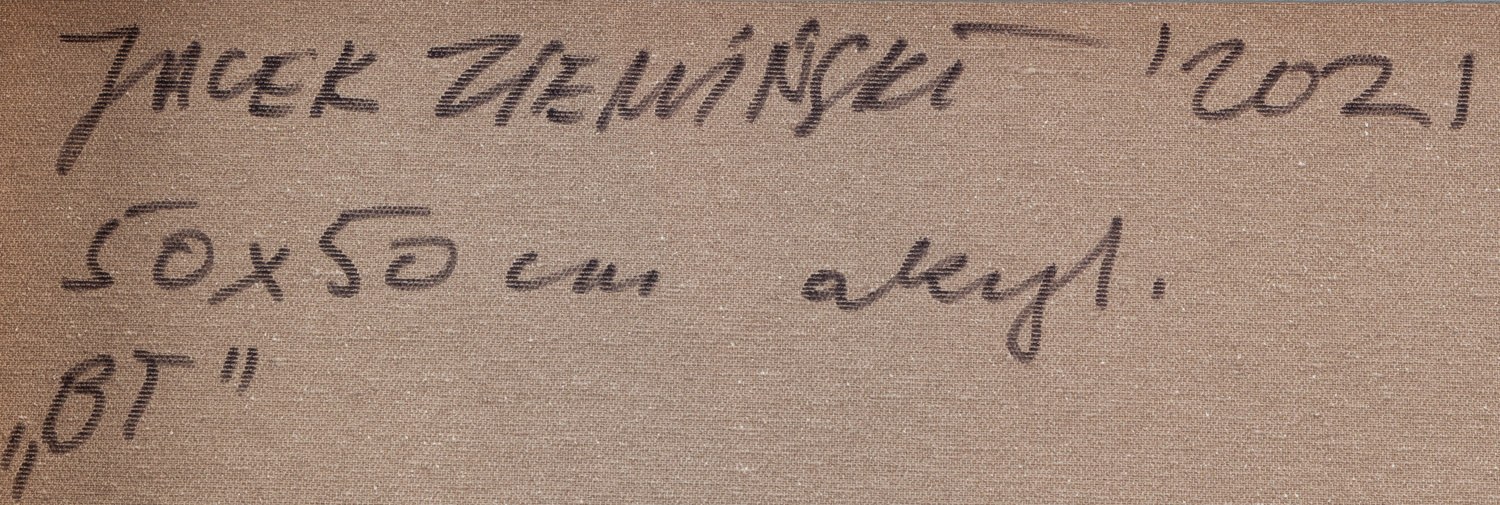 JACEK ZIEMIŃSKI '2021
50x50 cm akryl.
„BT"